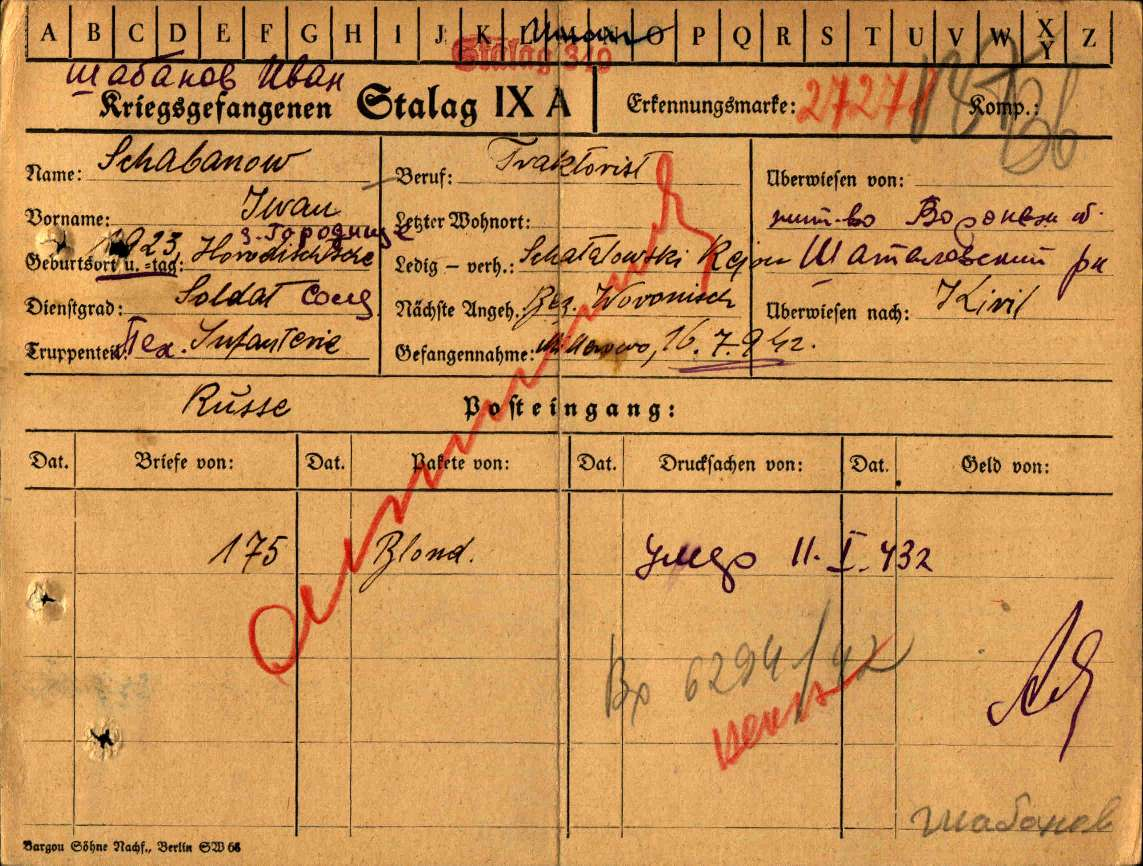 A B C D E F G H I J K L M N O P Q R S T U V W X Y Z
Stalag 340
Шабанов Иван
Kriegsgefangenen Stalag IX A Erkennungsmarke: 27271 Komp.:
Name: Schabanow
Vorname: Iwan
з. Городище
Geburtsort u. =tag: 1923, Horodischtsche
Dienstgrad: Soldat Солд
Truppenteil: Пех. Infanterie
Beruf: Traktorist
Letzter Wohnort:
Ledig – verh.: Schatalowski Rejon
Nächste Angeh. Bez. Woronisch
Gefangennahme: Millerowo, 16.7.942.
Überwiesen von:
жит-во Воронеж об.
Шаталовский рн
Überwiesen nach: Zivil
Russe Posteingang:
Dat. Briefe von: Dat. Pakete von: Dat. Drucksachen von: Dat. Geld von:
175 Blond. Умер 11. I. 43г
6294/42
Шабанов
Bargou Söhne Nachf., Berlin SW 68